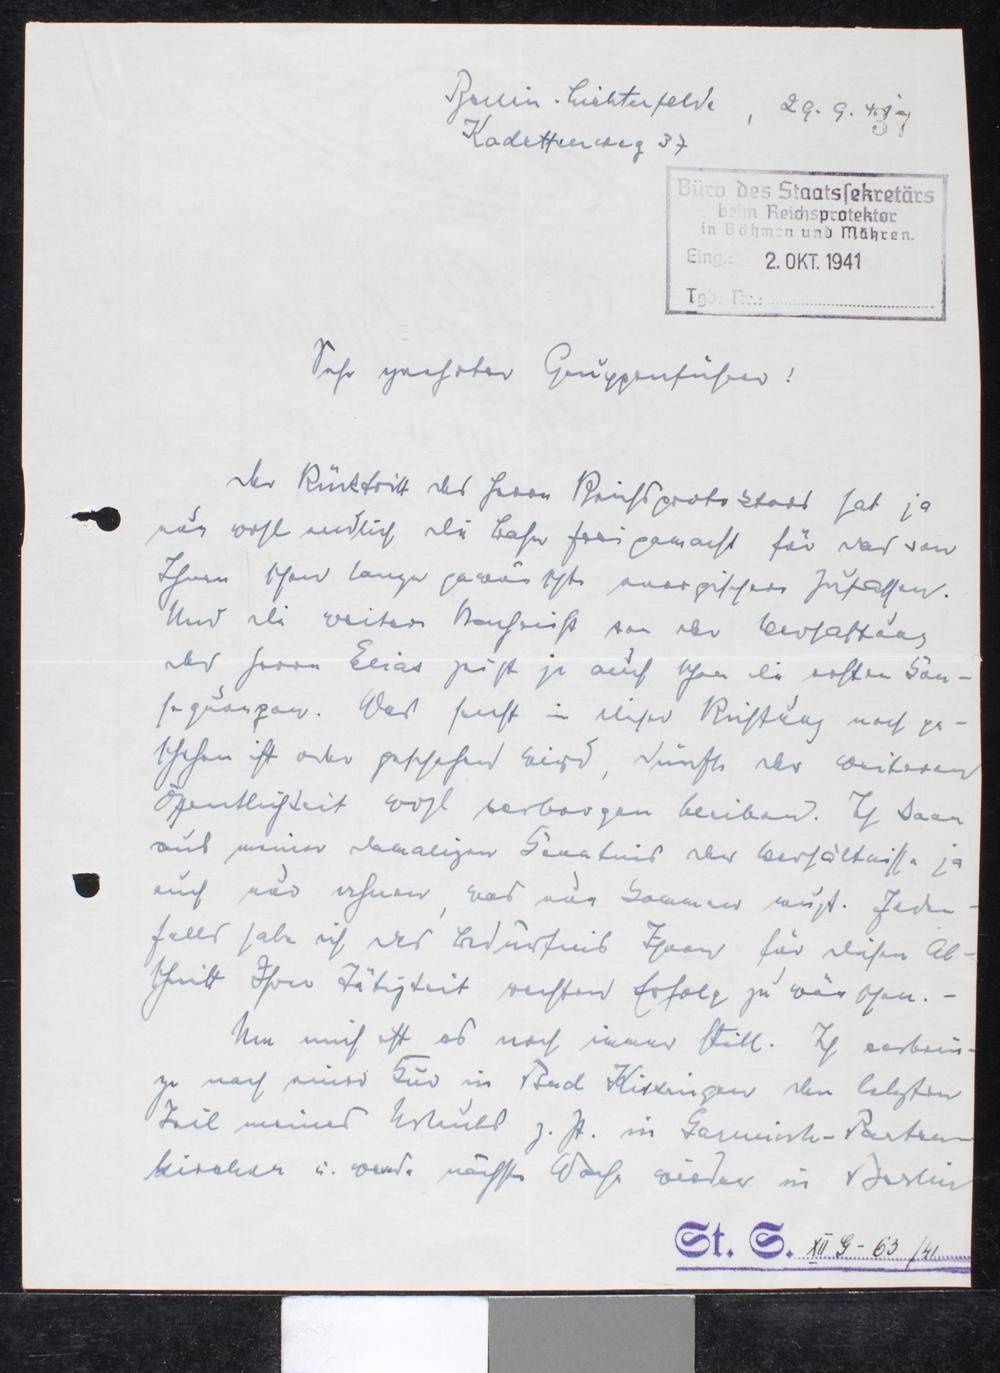 Berlin-Lichterfelde, 29. 9. 41
Kadettenweg 37
Büro des Staatssekretärs
beim Reichsprotektor
in Böhmen und Mähren.
Eing.: 2. OKT. 1941
Tgb. Nr.:
Sehr geehrter Gruppenführer!
der Rücktritt des Herrn Reichsprotektors hat ja
nun wohl endlich die Bahn frei gemacht für das von
Ihnen schon lange gewünschte energischere Zufassen.
Und die weitere Nachricht von der Verhaftung
des Herrn Elias zeigt ja auch schon die ersten Kon-
sequenzen. Was sonst in dieser Richtung noch ge-
schehen ist oder geschehen wird, dürfte der weiteren
Öffentlichkeit wohl verborgen bleiben. Ich kann
aus meiner damaligen Kenntnis der Verhältnisse ja
auch nur ahnen, was nun kommen muß. Jeden-
falls habe ich das Bedürfnis Ihnen für diesen Ab-
schnitt Ihrer Tätigkeit rechten Erfolg zu wünschen. -
Um mich ist es noch immer still. Ich verbrin-
ge nach einer Kur in Bad Kissingen den letzten
Teil meines Urlaubs z. Zt. in Garmisch-Parten-
kirchen u. werde nächste Woche wieder in Berlin
St. S. XII G - 63 /41